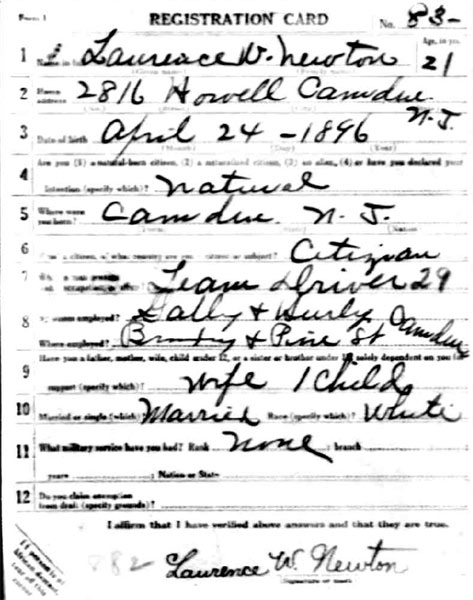 Form 1
REGISTRATION CARD No. 83-
1 Name in full Laurence W. Newton Age, in yrs. 21
(Given name) (Family name)
2 Home address 2816 Howell Camdue N.J.
3 Date of birth April 24 - 1896
(Month) (Day) (Year)
4 Are you (1) a natural-born citizen, (2) a naturalized citizen, (3) an alien, (4) or have you declared your
intention (specify which)? Natural
5 Where were you born? Camdue. N. J.
6 If not a citizen, of what country are you a citizen or subject? Citizian
7 What is your present occupation Team Driver 29
8 By whom employed? & Hurly
Where employed? & Pine St Camdue
9 Have you a father, mother, wife, child under 12, or a sister or brother under 12, solely dependent on you for
support (specify which)? Wife 1 Child
10 Married or single (which)? Married Race (specify which)? White
11 What military service have you had? Rank None ; branch
years ; Nation or State
12 Do you claim exemption
from draft (specify grounds)?
I affirm that I have verified above answers and that they are true.
882 Laurence W. Newton
(Signature or mark)
If person is of
African descent,
tear off this
corner